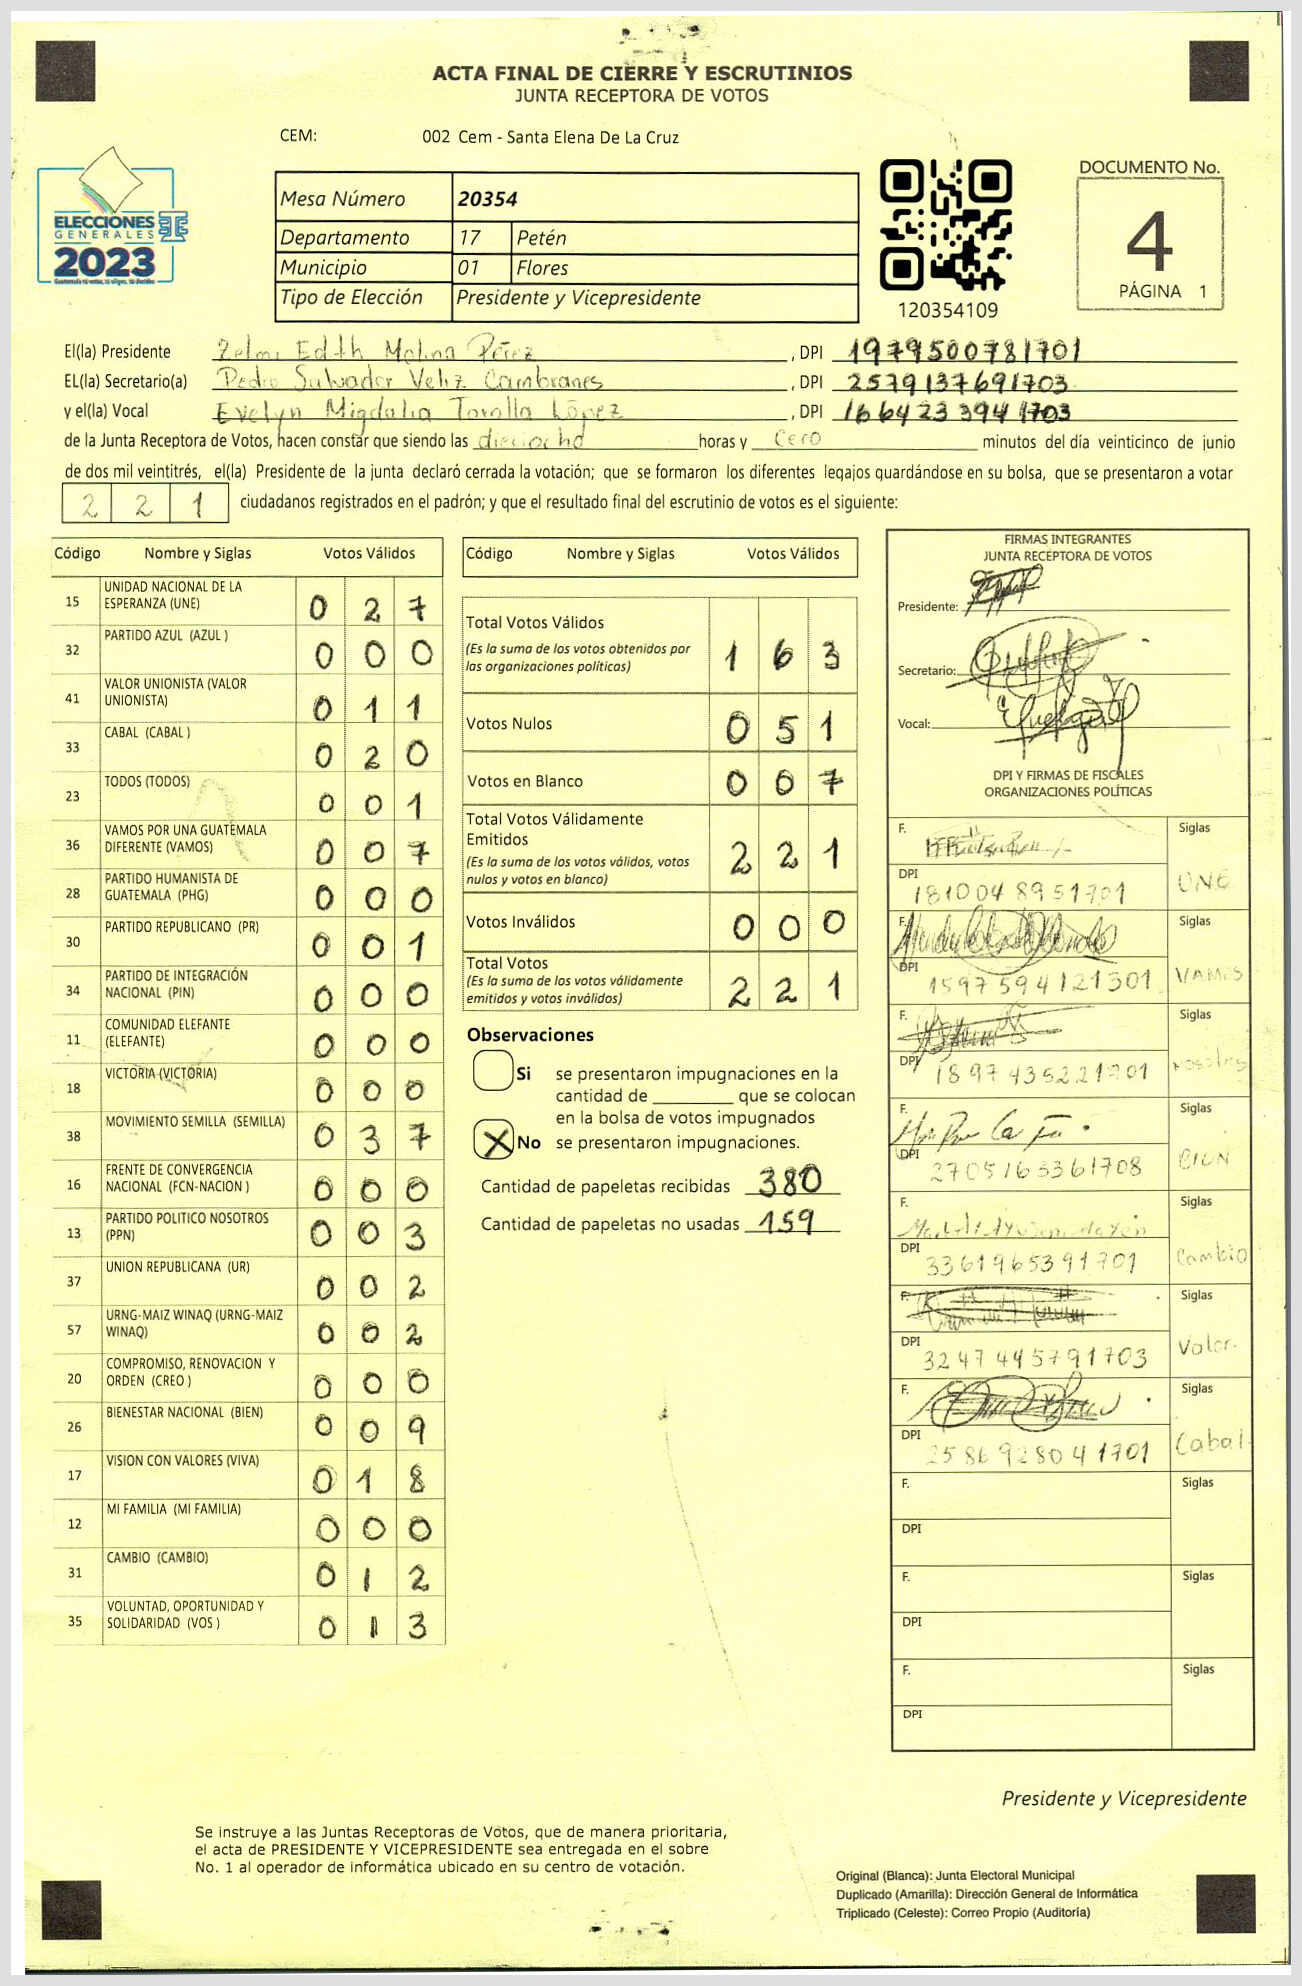 ACTA FINAL DE CIERRE Y ESCRUTINIOS
JUNTA RECEPTORA DE VOTOS
CEM: 002 Cem - Santa Elena De La Cruz
ELECCIONES
GENERALES
2023
Mesa Número 20354
Departamento 17 Petén
Municipio 01 Flores
Tipo de Elección Presidente y Vicepresidente
120354109
DOCUMENTO No.
4
PÁGINA 1
El(la) Presidente Edith Molina Pérez , DPI 1979500781701
EL(la) Secretario(a) Pedro Salvador Veliz Cambranes , DPI 2579137691703
y el(la) Vocal Evelyn Migdalia López , DPI 1664233941703
de la Junta Receptora de Votos, hacen constar que siendo las dieciocho horas y cero minutos del día veinticinco de junio
de dos mil veintitrés, el(la) Presidente de la junta declaró cerrada la votación; que se formaron los diferentes legajos guardándose en su bolsa, que se presentaron a votar
2 2 1 ciudadanos registrados en el padrón; y que el resultado final del escrutinio de votos es el siguiente:
Código Nombre y Siglas Votos Válidos
15 UNIDAD NACIONAL DE LA
ESPERANZA (UNE) 0 2 7
32 PARTIDO AZUL (AZUL ) 0 0 0
41 VALOR UNIONISTA (VALOR
UNIONISTA) 0 1 1
33 CABAL (CABAL ) 0 2 0
23 TODOS (TODOS) 0 0 1
36 VAMOS POR UNA GUATEMALA
DIFERENTE (VAMOS) 0 0 7
28 PARTIDO HUMANISTA DE
GUATEMALA (PHG) 0 0 0
30 PARTIDO REPUBLICANO (PR) 0 0 1
34 PARTIDO DE INTEGRACIÓN
NACIONAL (PIN) 0 0 0
11 COMUNIDAD ELEFANTE
(ELEFANTE) 0 0 0
18 VICTORIA (VICTORIA) 0 0 0
38 MOVIMIENTO SEMILLA (SEMILLA) 0 3 7
16 FRENTE DE CONVERGENCIA
NACIONAL (FCN-NACION ) 0 0 0
13 PARTIDO POLITICO NOSOTROS
(PPN) 0 0 3
37 UNION REPUBLICANA (UR) 0 0 2
57 URNG-MAIZ WINAQ (URNG-MAIZ
WINAQ) 0 0 2
20 COMPROMISO, RENOVACION Y
ORDEN (CREO ) 0 0 0
26 BIENESTAR NACIONAL (BIEN) 0 0 9
17 VISION CON VALORES (VIVA) 0 1 8
12 MI FAMILIA (MI FAMILIA) 0 0 0
31 CAMBIO (CAMBIO) 0 1 2
35 VOLUNTAD, OPORTUNIDAD Y
SOLIDARIDAD (VOS ) 0 1 3
Código Nombre y Siglas Votos Válidos
Total Votos Válidos
(Es la suma de los votos obtenidos por
las organizaciones políticas) 1 6 3
Votos Nulos 0 5 1
Votos en Blanco 0 0 7
Total Votos Válidamente
Emitidos
(Es la suma de los votos válidos, votos
nulos y votos en blanco) 2 2 1
Votos Inválidos 0 0 0
Total Votos
(Es la suma de los votos válidamente
emitidos y votos inválidos) 2 2 1
Observaciones
Si se presentaron impugnaciones en la
cantidad de ________ que se colocan
en la bolsa de votos impugnados
X No se presentaron impugnaciones.
Cantidad de papeletas recibidas 380
Cantidad de papeletas no usadas 159
FIRMAS INTEGRANTES
JUNTA RECEPTORA DE VOTOS
Presidente:
Secretario:
Vocal:
DPI Y FIRMAS DE FISCALES
ORGANIZACIONES POLÍTICAS
F. Siglas
DPI 1810048951701 UNE
F. Siglas
DPI 1597594121301 VAMOS
F. Siglas
DPI 1897435221701 Nosotros
F. Siglas
DPI 2705165361708
F. Siglas
DPI 3361965391701 Cambio
F. Siglas
DPI 3247445791703 Valor.
F. Siglas
DPI 2586928041701 Cabal
F. Siglas
DPI
F. Siglas
DPI
F. Siglas
DPI
Presidente y Vicepresidente
Se instruye a las Juntas Receptoras de Votos, que de manera prioritaria,
el acta de PRESIDENTE Y VICEPRESIDENTE sea entregada en el sobre
No. 1 al operador de informática ubicado en su centro de votación.
Original (Blanca): Junta Electoral Municipal
Duplicado (Amarilla): Dirección General de Informática
Triplicado (Celeste): Correo Propio (Auditoría)